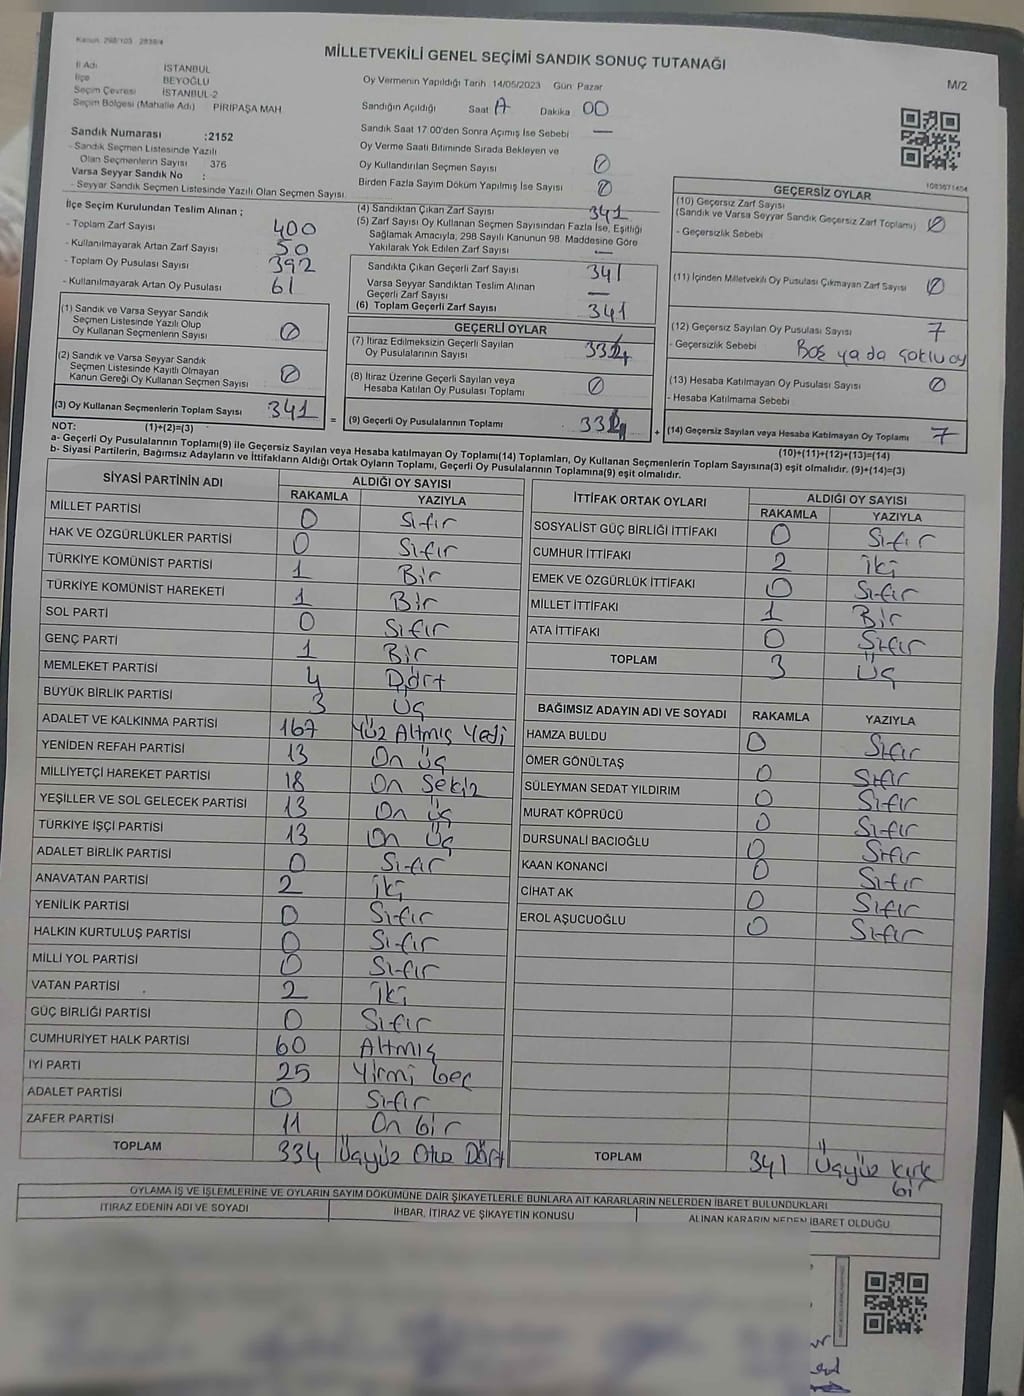 Kanun: 298/105 2839/4
MİLLETVEKİLİ GENEL SEÇİMİ SANDIK SONUÇ TUTANAĞI
M/2
İl Adı İSTANBUL
İlçe BEYOĞLU
Seçim Çevresi İSTANBUL-2
Seçim Bölgesi (Mahalle Adı) PİRİPAŞA MAH.
Oy Vermenin Yapıldığı Tarih 14/05/2023 Gün Pazar
Sandığın Açıldığı Saat Dakika 00
Sandık Saat 17.00'den Sonra Açımış İse Sebebi —
Oy Verme Saati Bitiminde Sırada Bekleyen ve
Oy Kullandırılan Seçmen Sayısı 0
Birden Fazla Sayım Döküm Yapılmış İse Sayısı 0
Sandık Numarası :2152
- Sandık Seçmen Listesinde Yazılı
Olan Seçmenlerin Sayısı 376
Varsa Seyyar Sandık No :
- Seyyar Sandık Seçmen Listesinde Yazılı Olan Seçmen Sayısı
İlçe Seçim Kurulundan Teslim Alınan ;
- Toplam Zarf Sayısı 400
- Kullanılmayarak Artan Zarf Sayısı 50
- Toplam Oy Pusulası Sayısı 392
- Kullanılmayarak Artan Oy Pusulası 61
(1) Sandık ve Varsa Seyyar Sandık
Seçmen Listesinde Yazılı Olup
Oy Kullanan Seçmenlerin Sayısı 0
(2) Sandık ve Varsa Seyyar Sandık
Seçmen Listesinde Kayıtlı Olmayan
Kanun Gereği Oy Kullanan Seçmen Sayısı 0
(3) Oy Kullanan Seçmenlerin Toplam Sayısı 341 =
(4) Sandıktan Çıkan Zarf Sayısı 341
(5) Zarf Sayısı Oy Kullanan Seçmen Sayısından Fazla İse, Eşitliği
Sağlamak Amacıyla, 298 Sayılı Kanunun 98. Maddesine Göre
Yakılarak Yok Edilen Zarf Sayısı —
Sandıkta Çıkan Geçerli Zarf Sayısı 341
Varsa Seyyar Sandıktan Teslim Alınan
Geçerli Zarf Sayısı —
(6) Toplam Geçerli Zarf Sayısı 341
GEÇERLİ OYLAR
(7) İtiraz Edilmeksizin Geçerli Sayılan
Oy Pusulalarının Sayısı 334
(8) İtiraz Üzerine Geçerli Sayılan veya
Hesaba Katılan Oy Pusulası Toplamı 0
(9) Geçerli Oy Pusulalarının Toplamı 334 +
1083671454
GEÇERSİZ OYLAR
(10) Geçersiz Zarf Sayısı
(Sandık ve Varsa Seyyar Sandık Geçersiz Zarf Toplamı) 0
- Geçersizlik Sebebi
(11) İçinden Milletvekili Oy Pusulası Çıkmayan Zarf Sayısı 0
(12) Geçersiz Sayılan Oy Pusulası Sayısı 7
- Geçersizlik Sebebi Boş ya da çoklu oy
(13) Hesaba Katılmayan Oy Pusulası Sayısı 0
- Hesaba Katılmama Sebebi
(14) Geçersiz Sayılan veya Hesaba Katılmayan Oy Toplamı 7
NOT: (1)+(2)=(3) (10)+(11)+(12)+(13)=(14)
a- Geçerli Oy Pusulalarının Toplamı(9) ile Geçersiz Sayılan veya Hesaba katılmayan Oy Toplamı(14) Toplamları, Oy Kullanan Seçmenlerin Toplam Sayısına(3) eşit olmalıdır. (9)+(14)=(3)
b- Siyasi Partilerin, Bağımsız Adayların ve İttifakların Aldığı Ortak Oyların Toplamı, Geçerli Oy Pusulalarının Toplamına(9) eşit olmalıdır.
SİYASİ PARTİNİN ADI ALDIĞI OY SAYISI
RAKAMLA YAZIYLA
MİLLET PARTİSİ 0 Sıfır
HAK VE ÖZGÜRLÜKLER PARTİSİ 0 Sıfır
TÜRKİYE KOMÜNİST PARTİSİ 1 Bir
TÜRKİYE KOMÜNİST HAREKETİ 1 Bir
SOL PARTİ 0 Sıfır
GENÇ PARTİ 1 Bir
MEMLEKET PARTİSİ 4 Dört
BÜYÜK BİRLİK PARTİSİ 3 Üç
ADALET VE KALKINMA PARTİSİ 167 Yüz Altmış Yedi
YENİDEN REFAH PARTİSİ 13 On üç
MİLLİYETÇİ HAREKET PARTİSİ 18 On Sekiz
YEŞİLLER VE SOL GELECEK PARTİSİ 13 On üç
TÜRKİYE İŞÇİ PARTİSİ 13 On Üç
ADALET BİRLİK PARTİSİ 0 Sıfır
ANAVATAN PARTİSİ 2 iki
YENİLİK PARTİSİ 0 Sıfır
HALKIN KURTULUŞ PARTİSİ 0 Sıfır
MİLLİ YOL PARTİSİ 0 Sıfır
VATAN PARTİSİ 2 iki
GÜÇ BİRLİĞİ PARTİSİ 0 Sıfır
CUMHURİYET HALK PARTİSİ 60 Altmış
İYİ PARTİ 25 Yirmi beş
ADALET PARTİSİ 0 Sıfır
ZAFER PARTİSİ 11 On bir
TOPLAM 334 Üçyüz Otuz Dört
İTTİFAK ORTAK OYLARI ALDIĞI OY SAYISI
RAKAMLA YAZIYLA
SOSYALİST GÜÇ BİRLİĞİ İTTİFAKI 0 Sıfır
CUMHUR İTTİFAKI 2 iki
EMEK VE ÖZGÜRLÜK İTTİFAKI 0 Sıfır
MİLLET İTTİFAKI 1 Bir
ATA İTTİFAKI 0 Sıfır
TOPLAM 3 Üç
BAĞIMSIZ ADAYIN ADI VE SOYADI RAKAMLA YAZIYLA
HAMZA BULDU 0 Sıfır
ÖMER GÖNÜLTAŞ 0 Sıfır
SÜLEYMAN SEDAT YILDIRIM 0 Sıfır
MURAT KÖPRÜCÜ 0 Sıfır
DURSUNALİ BACIOĞLU 0 Sıfır
KAAN KONANCİ 0 Sıfır
CİHAT AK 0 Sıfır
EROL AŞUCUOĞLU 0 Sıfır
TOPLAM 341 Üçyüz kırk
bir
OYLAMA İŞ VE İŞLEMLERİNE VE OYLARIN SAYIM DÖKÜMÜNE DAİR ŞİKAYETLERLE BUNLARA AİT KARARLARIN NELERDEN İBARET BULUNDUKLARI
İTİRAZ EDENİN ADI VE SOYADI İHBAR, İTİRAZ VE ŞİKAYETİN KONUSU ALINAN KARARIN NEDEN İBARET OLDUĞU